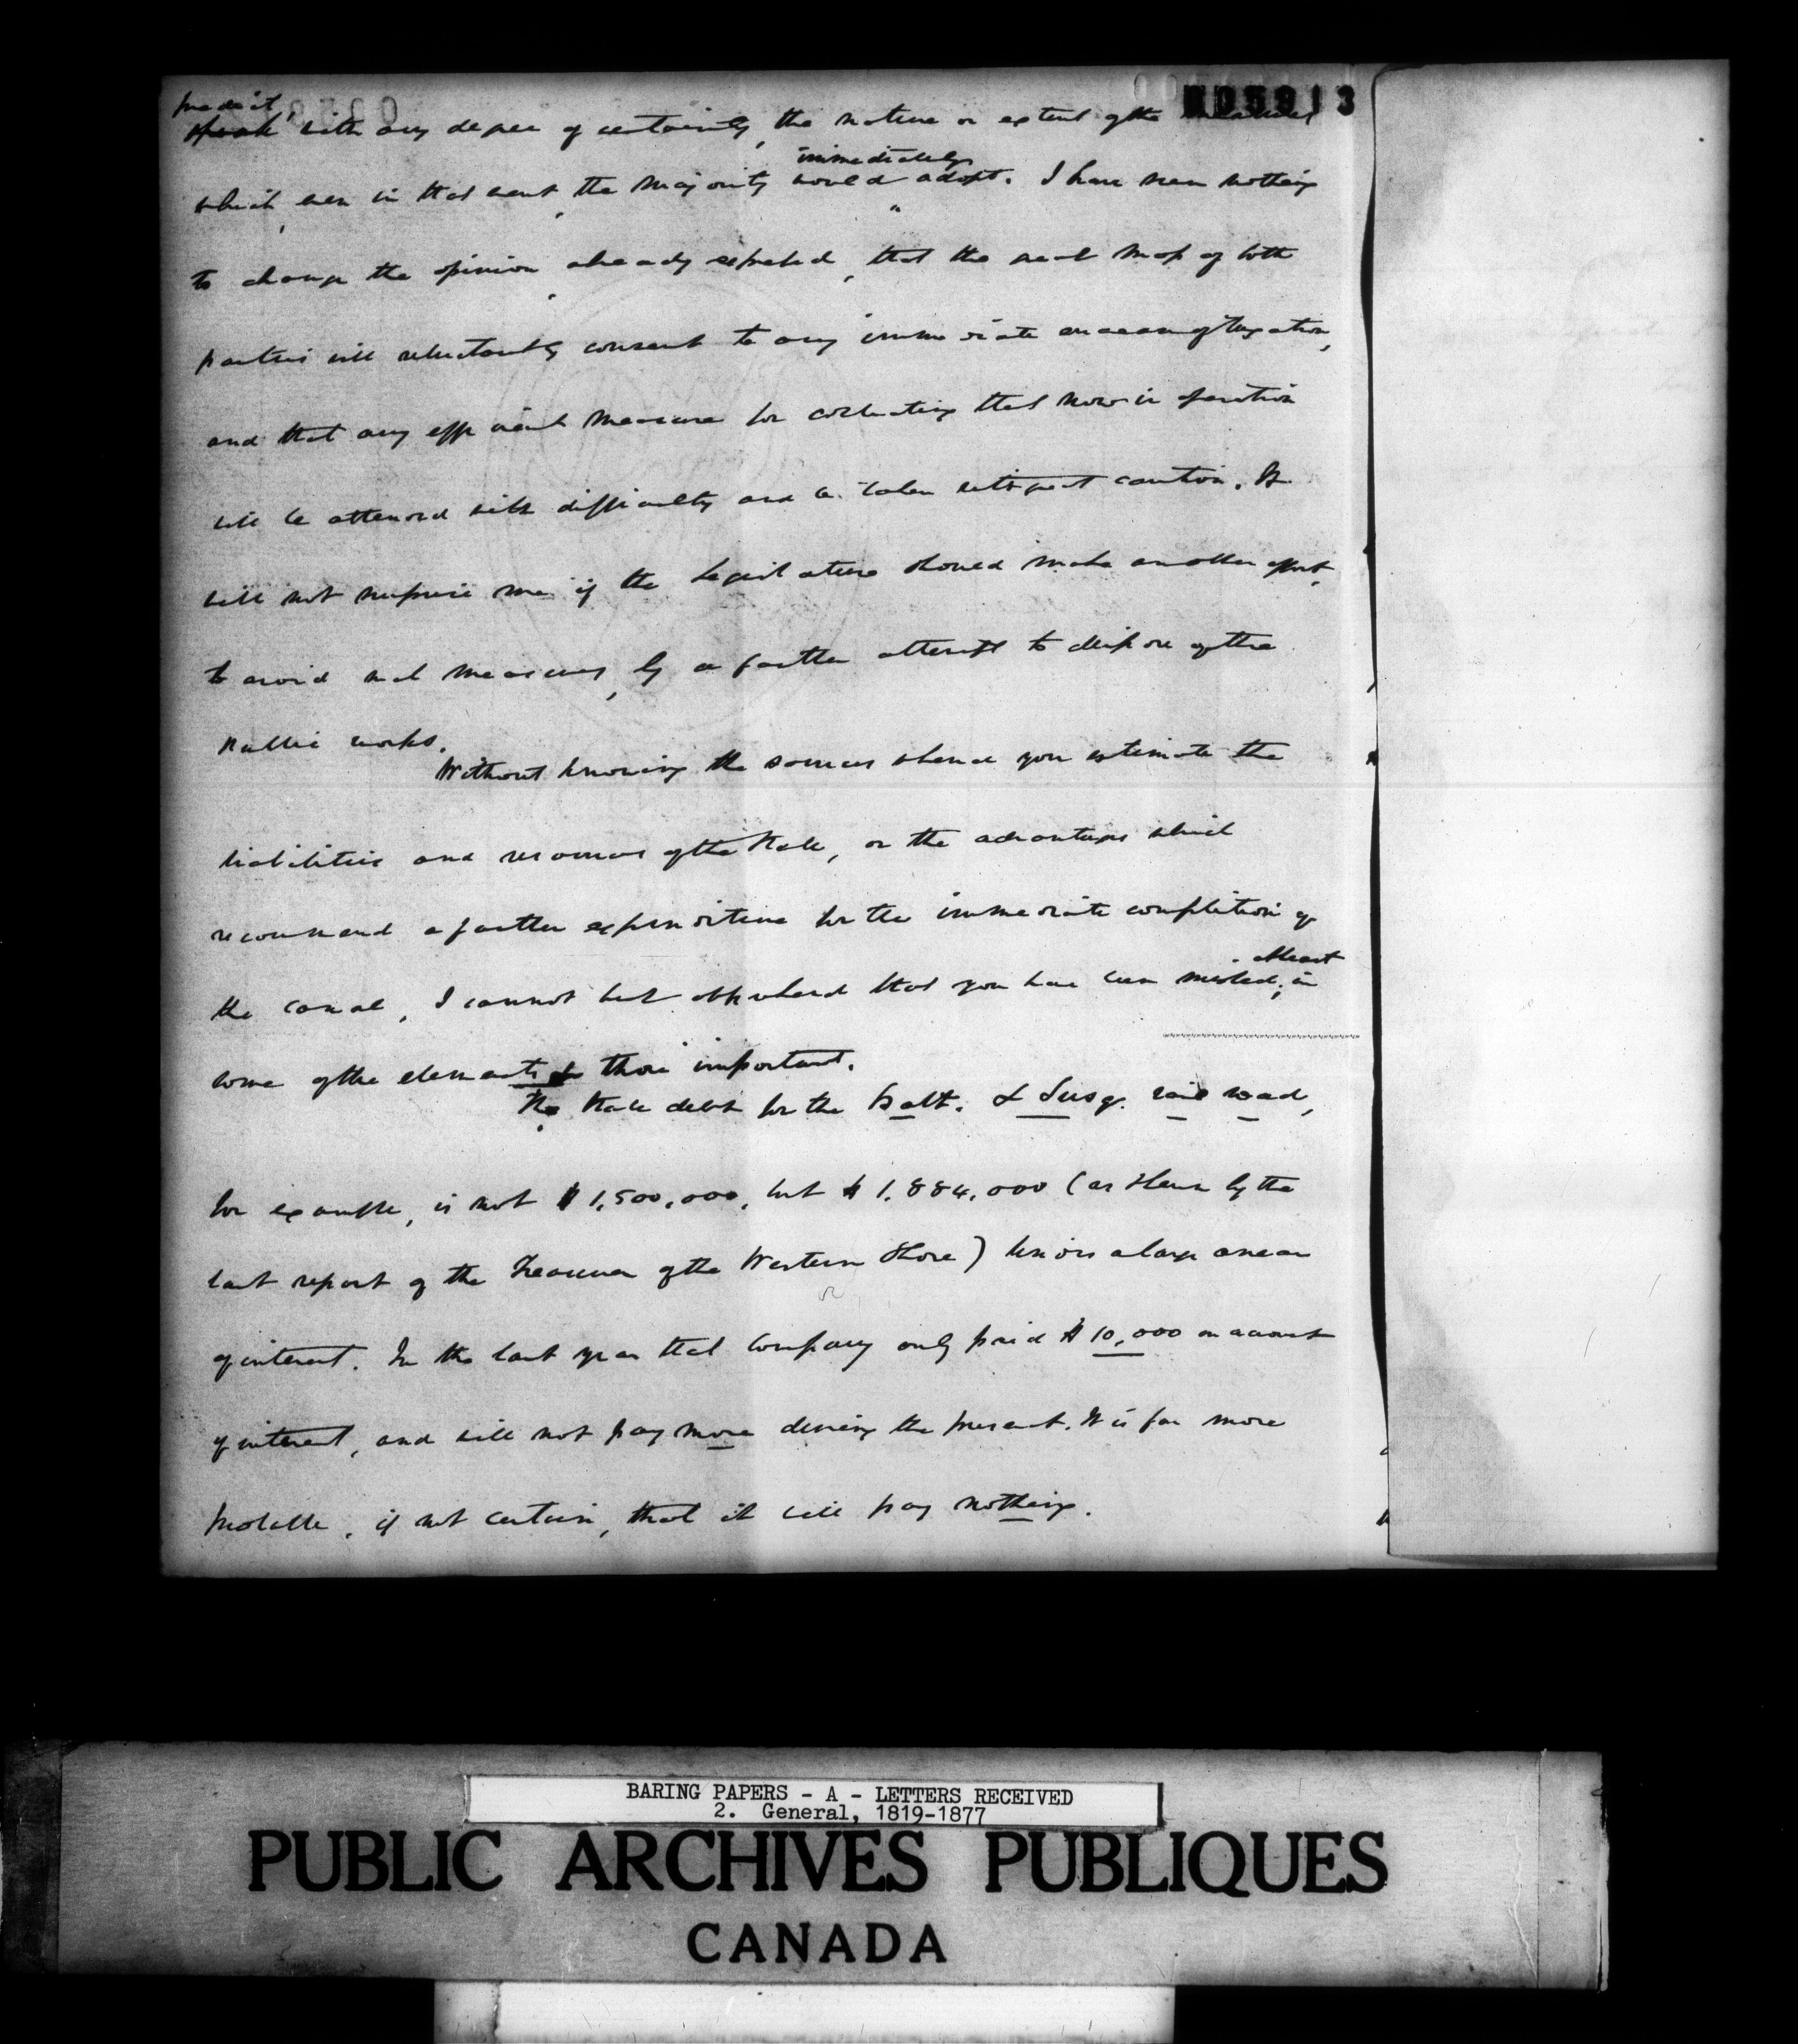 predict,
speak with any degree of certainty, the nature or extent of the measures
005913
immediately
which, even in that event, the majority would adopt. I have seen nothing
to change the opinion already expressed, that the great mass of both
parties will reluctantly consent to any immediate increase of taxation,
and that any efficient measure for collecting that now in operation
will be attended with difficulty and be taken with great caution. It
will not surprise me if the Legislature should make another effort,
to avoid such measures, by a further attempt to dispose of the
public works.
Without knowing the sources whence you estimate the
liabilities and resources of the State, or the advantages which
recommend a further expenditure for the immediate completion of
the canal, I cannot but apprehend that you have been misled, in
at least
some of the elements & those important.
The State debt for the Balt. & Susq. rail road,
for example, is not $1,500,000, but $1,884,000 (as shewn by the
last report of the Treasurer of the Western Shore) besides a large arrear
of interest. In the last year that Company only paid $10,000 on account
of interest, and will not pay more during the present. It is far more
probable, if not certain, that it will pay nothing.
BARING PAPERS - A - LETTERS RECEIVED
2. General, 1819-1877
PUBLIC ARCHIVES PUBLIQUES
CANADA